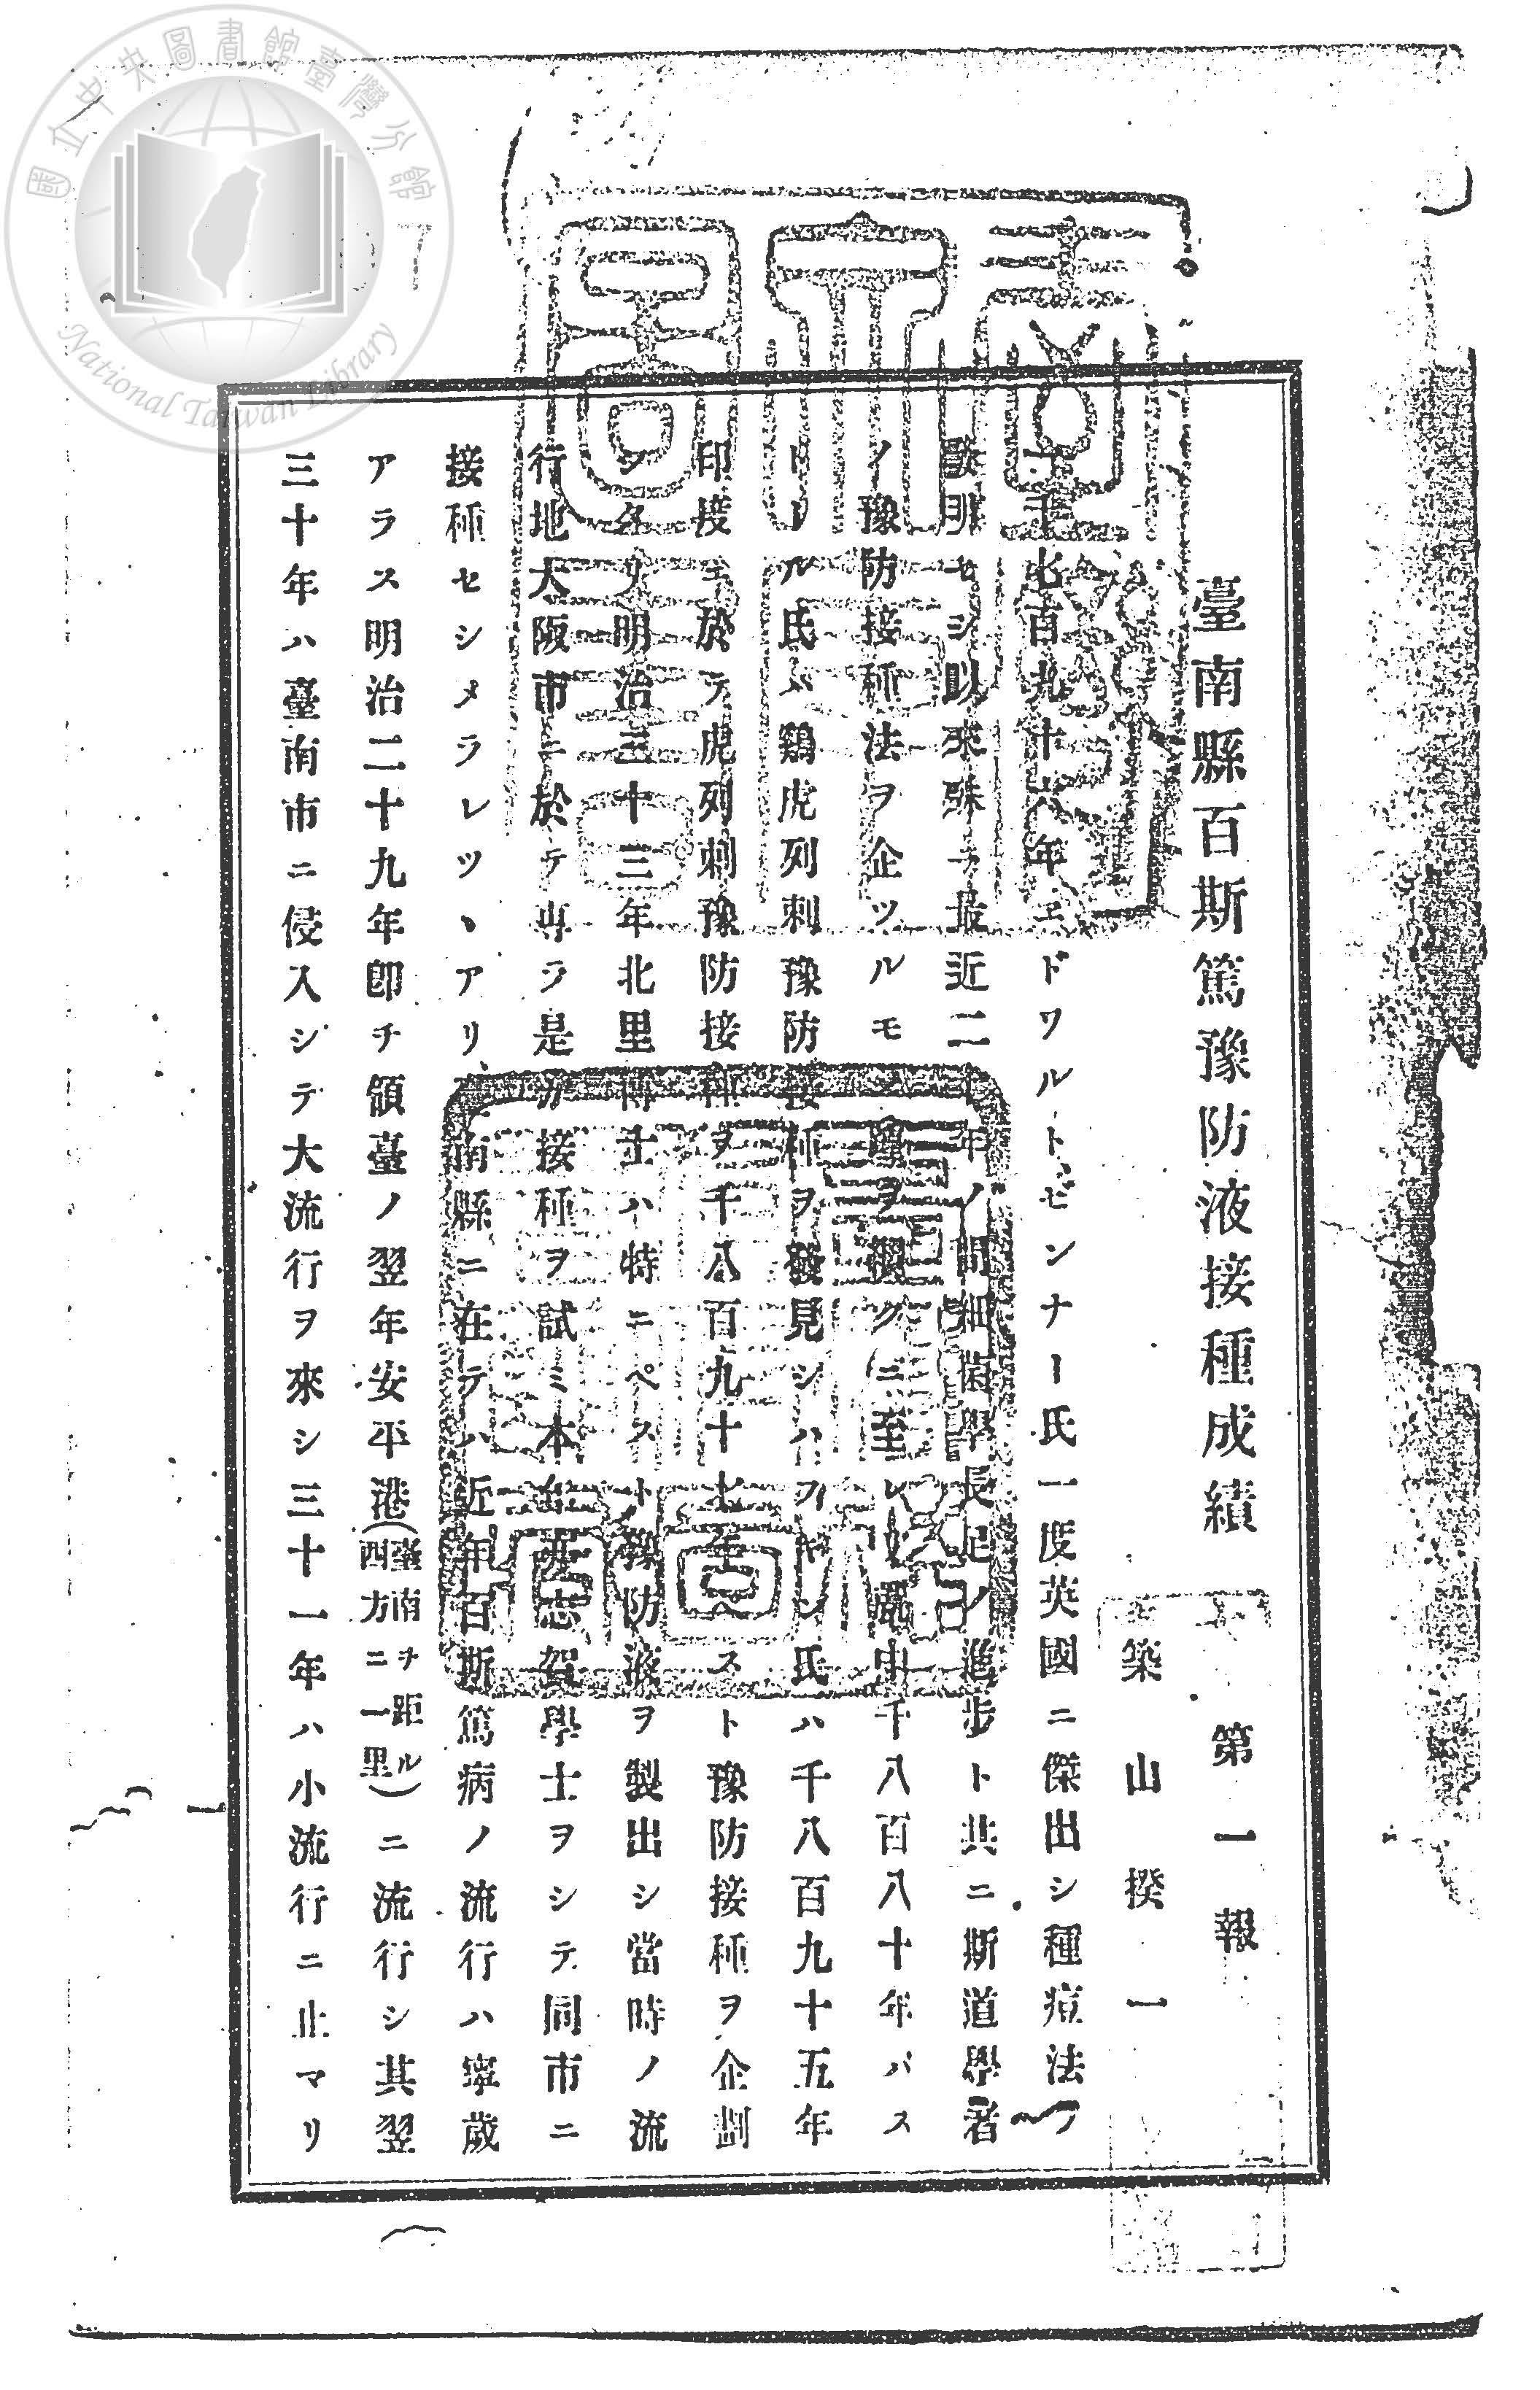 臺南縣百斯篤豫防液接種成績 第一報
築山揆一
千七百九十六年エドワルトゼンナー氏一度英國ニ傑出シ種痘法ヲ
發明セシ以來殊ニ最近二十年ノ間細菌學長足ノ進歩ト共ニ斯道學者
ノ豫防接種法ヲ企ツルモノ踵ヲ接クニ至レリ就中千八百八十年パス
トール氏ハ鷄虎列刺豫防接種ヲ發見シハフキン氏ハ千八百九十五年
印度ニ於テ虎列刺豫防接種ヲ千八百九十七年ペスト豫防接種ヲ企劃
明治三十三年北里博士ハ特ニペスト豫防液ヲ製出シ當時ノ流
行地大阪市ニ於テ專ラ是カ接種ヲ試ミ本台亦志賀學士ヲシテ同市ニ
接種セシメラレツヽアリ
南縣ニ在テハ近年百斯篤病ノ流行ハ寧歲
アラス明治二十九年卽チ領臺ノ翌年安平港(臺南ヲ距ル西方ニ一里)ニ流行シ其翌
三十年ハ臺南市ニ侵入シテ大流行ヲ來シ三十一年ハ小流行ニ止マリ
國立中央圖書館臺灣分館
National Taiwan Library